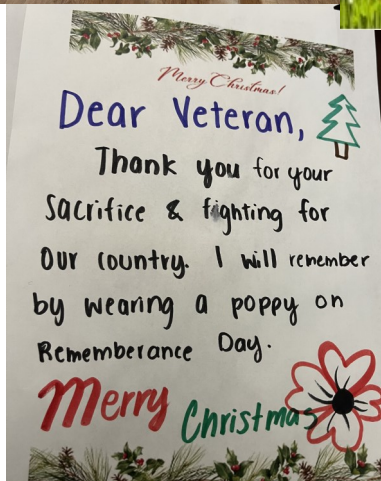 Merry Christmas!
Dear Veteran,
Thank you for your
sacrifice & fighting for
our country. I will remember
by wearing a poppy on
Rememberance Day.
Merry Christmas